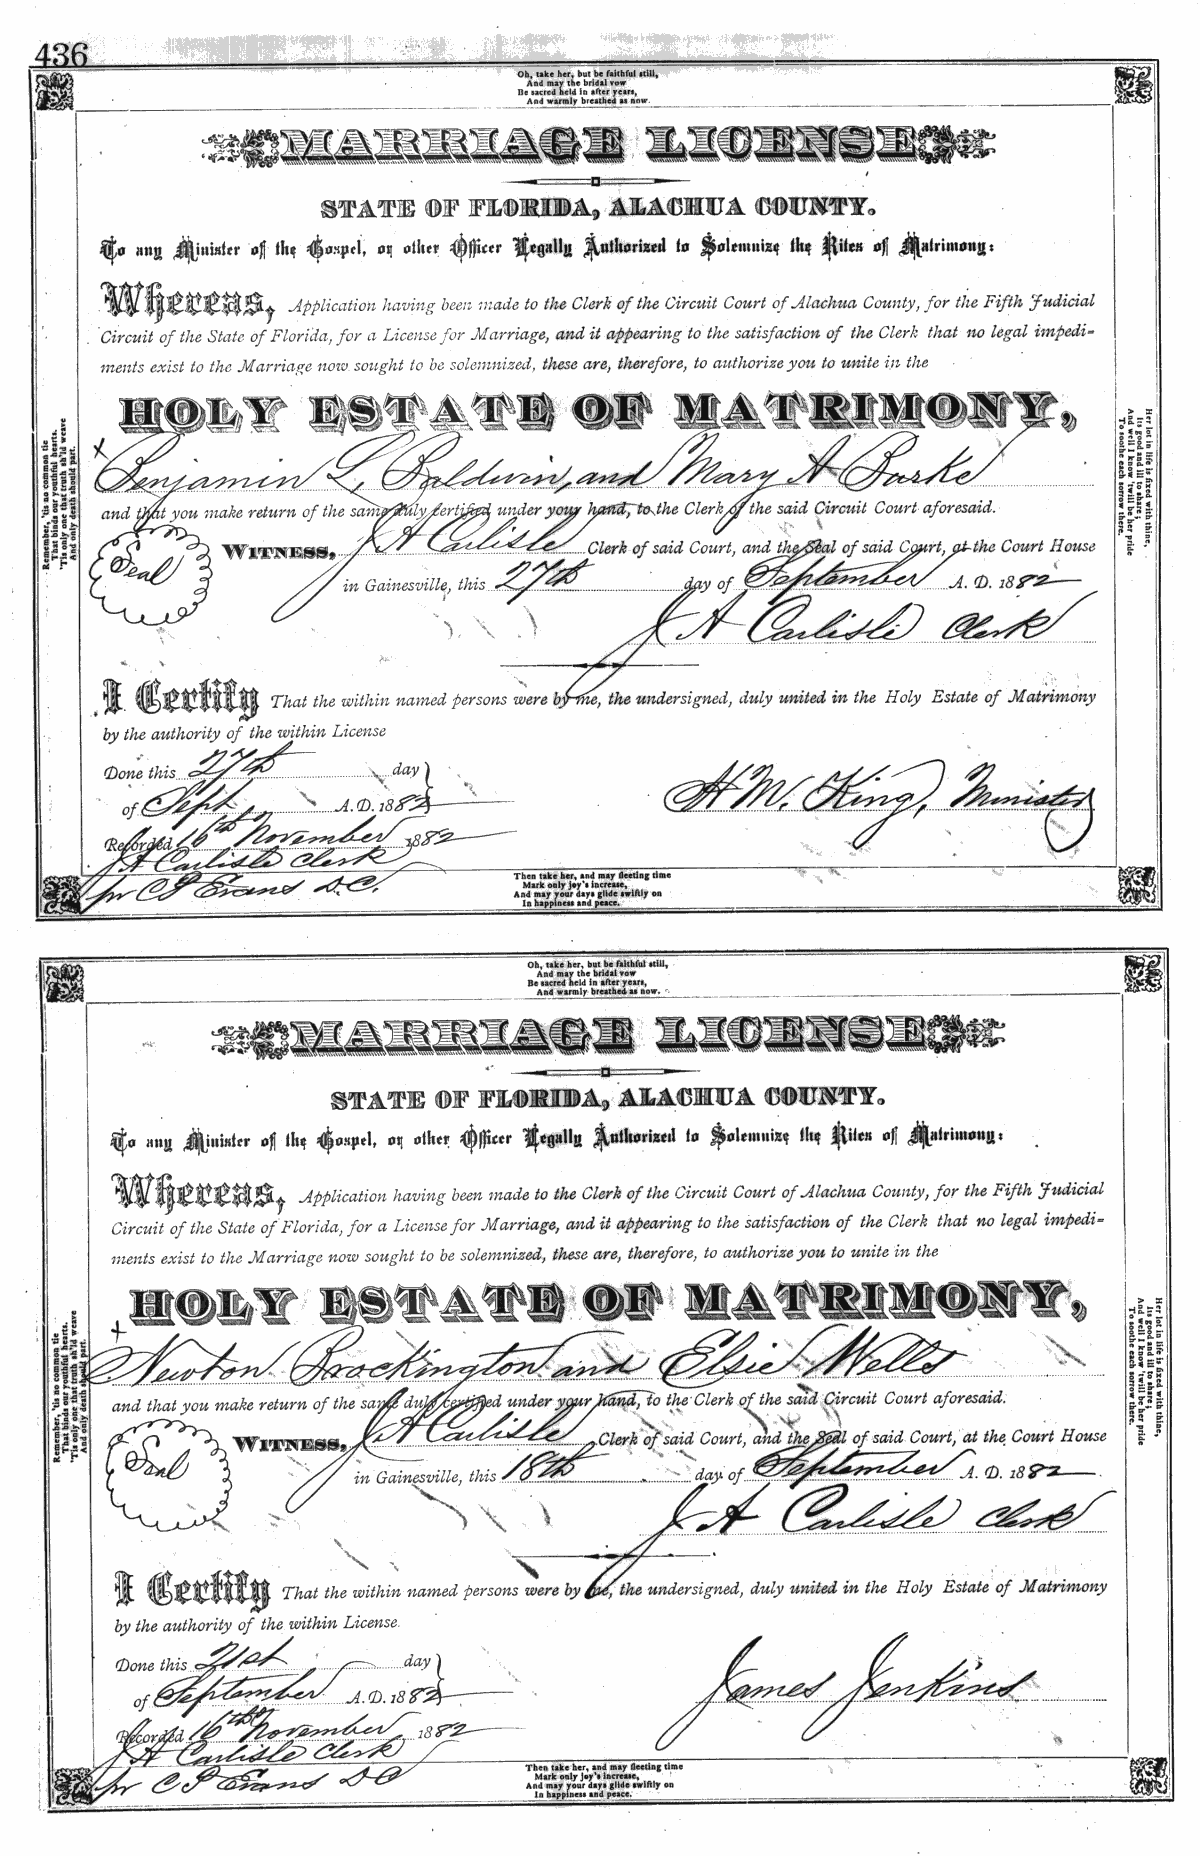 436
Oh, take her, but be faithful still,
And may the bridal vow
Be sacred held in after years,
And warmly breathed as now.
MARRIAGE LICENSE
STATE OF FLORIDA, ALACHUA COUNTY.
To any Minister of the Gospel, or other Officer Legally Authorized to Solemnize the Rites of Matrimony:
Whereas, Application having been made to the Clerk of the Circuit Court of Alachua County, for the Fifth Judicial
Circuit of the State of Florida, for a License for Marriage, and it appearing to the satisfaction of the Clerk that no legal impedi-
ments exist to the Marriage now sought to be solemnized, these are, therefore, to authorize you to unite in the
HOLY ESTATE OF MATRIMONY,
x
Benjamin L. Baldwin, and Mary A Burke
and that you make return of the same duly certified under your hand, to the Clerk of the said Circuit Court aforesaid.
Seal
WITNESS, J A Carlisle Clerk of said Court, and the Seal of said Court, at the Court House
in Gainesville, this 27th day of September A. D. 1882
J A Carlisle Clerk
I Certify That the within named persons were by me, the undersigned, duly united in the Holy Estate of Matrimony
by the authority of the within License
Done this 27th day
of Sept. A.D. 1882
H M. King, Minister
Recorded 16th November 1882
J A Carlisle Clerk
pr C P Evans D.C.
Remember, 'tis no common tie
That binds our youthful hearts.
'Tis only one that truth sh'ld weave
And only death should part.
Her lot in life is fixed with thine,
Its good and ill to share;
And well I know 'twill be her pride
To soothe each sorrow there.
Then take her, and may fleeting time
Mark only joy's increase,
And may your days glide swiftly on
In happiness and peace.
Oh, take her, but be faithful still,
And may the bridal vow
Be sacred held in after years,
And warmly breathed as now.
MARRIAGE LICENSE
STATE OF FLORIDA, ALACHUA COUNTY.
To any Minister of the Gospel, or other Officer Legally Authorized to Solemnize the Rites of Matrimony:
Whereas, Application having been made to the Clerk of the Circuit Court of Alachua County, for the Fifth Judicial
Circuit of the State of Florida, for a License for Marriage, and it appearing to the satisfaction of the Clerk that no legal impedi-
ments exist to the Marriage now sought to be solemnized, these are, therefore, to authorize you to unite in the
HOLY ESTATE OF MATRIMONY,
x
Newton Brockington and Elsie Wells
and that you make return of the same duly certified under your hand, to the Clerk of the said Circuit Court aforesaid.
Seal
WITNESS, J A Carlisle Clerk of said Court, and the Seal of said Court, at the Court House
in Gainesville, this 18th day of September A. D. 1882
J A Carlisle Clerk
I Certify That the within named persons were by me, the undersigned, duly united in the Holy Estate of Matrimony
by the authority of the within License.
Done this 21st day
of September A.D. 1882
James Jenkins
Recorded 16th November 1882
J A Carlisle Clerk
pr C P Evans D C
Remember, 'tis no common tie
That binds our youthful hearts.
'Tis only one that truth sh'ld weave
And only death should part.
Her lot in life is fixed with thine,
Its good and ill to share;
And well I know 'twill be her pride
To soothe each sorrow there.
Then take her, and may fleeting time
Mark only joy's increase,
And may your days glide swiftly on
In happiness and peace.